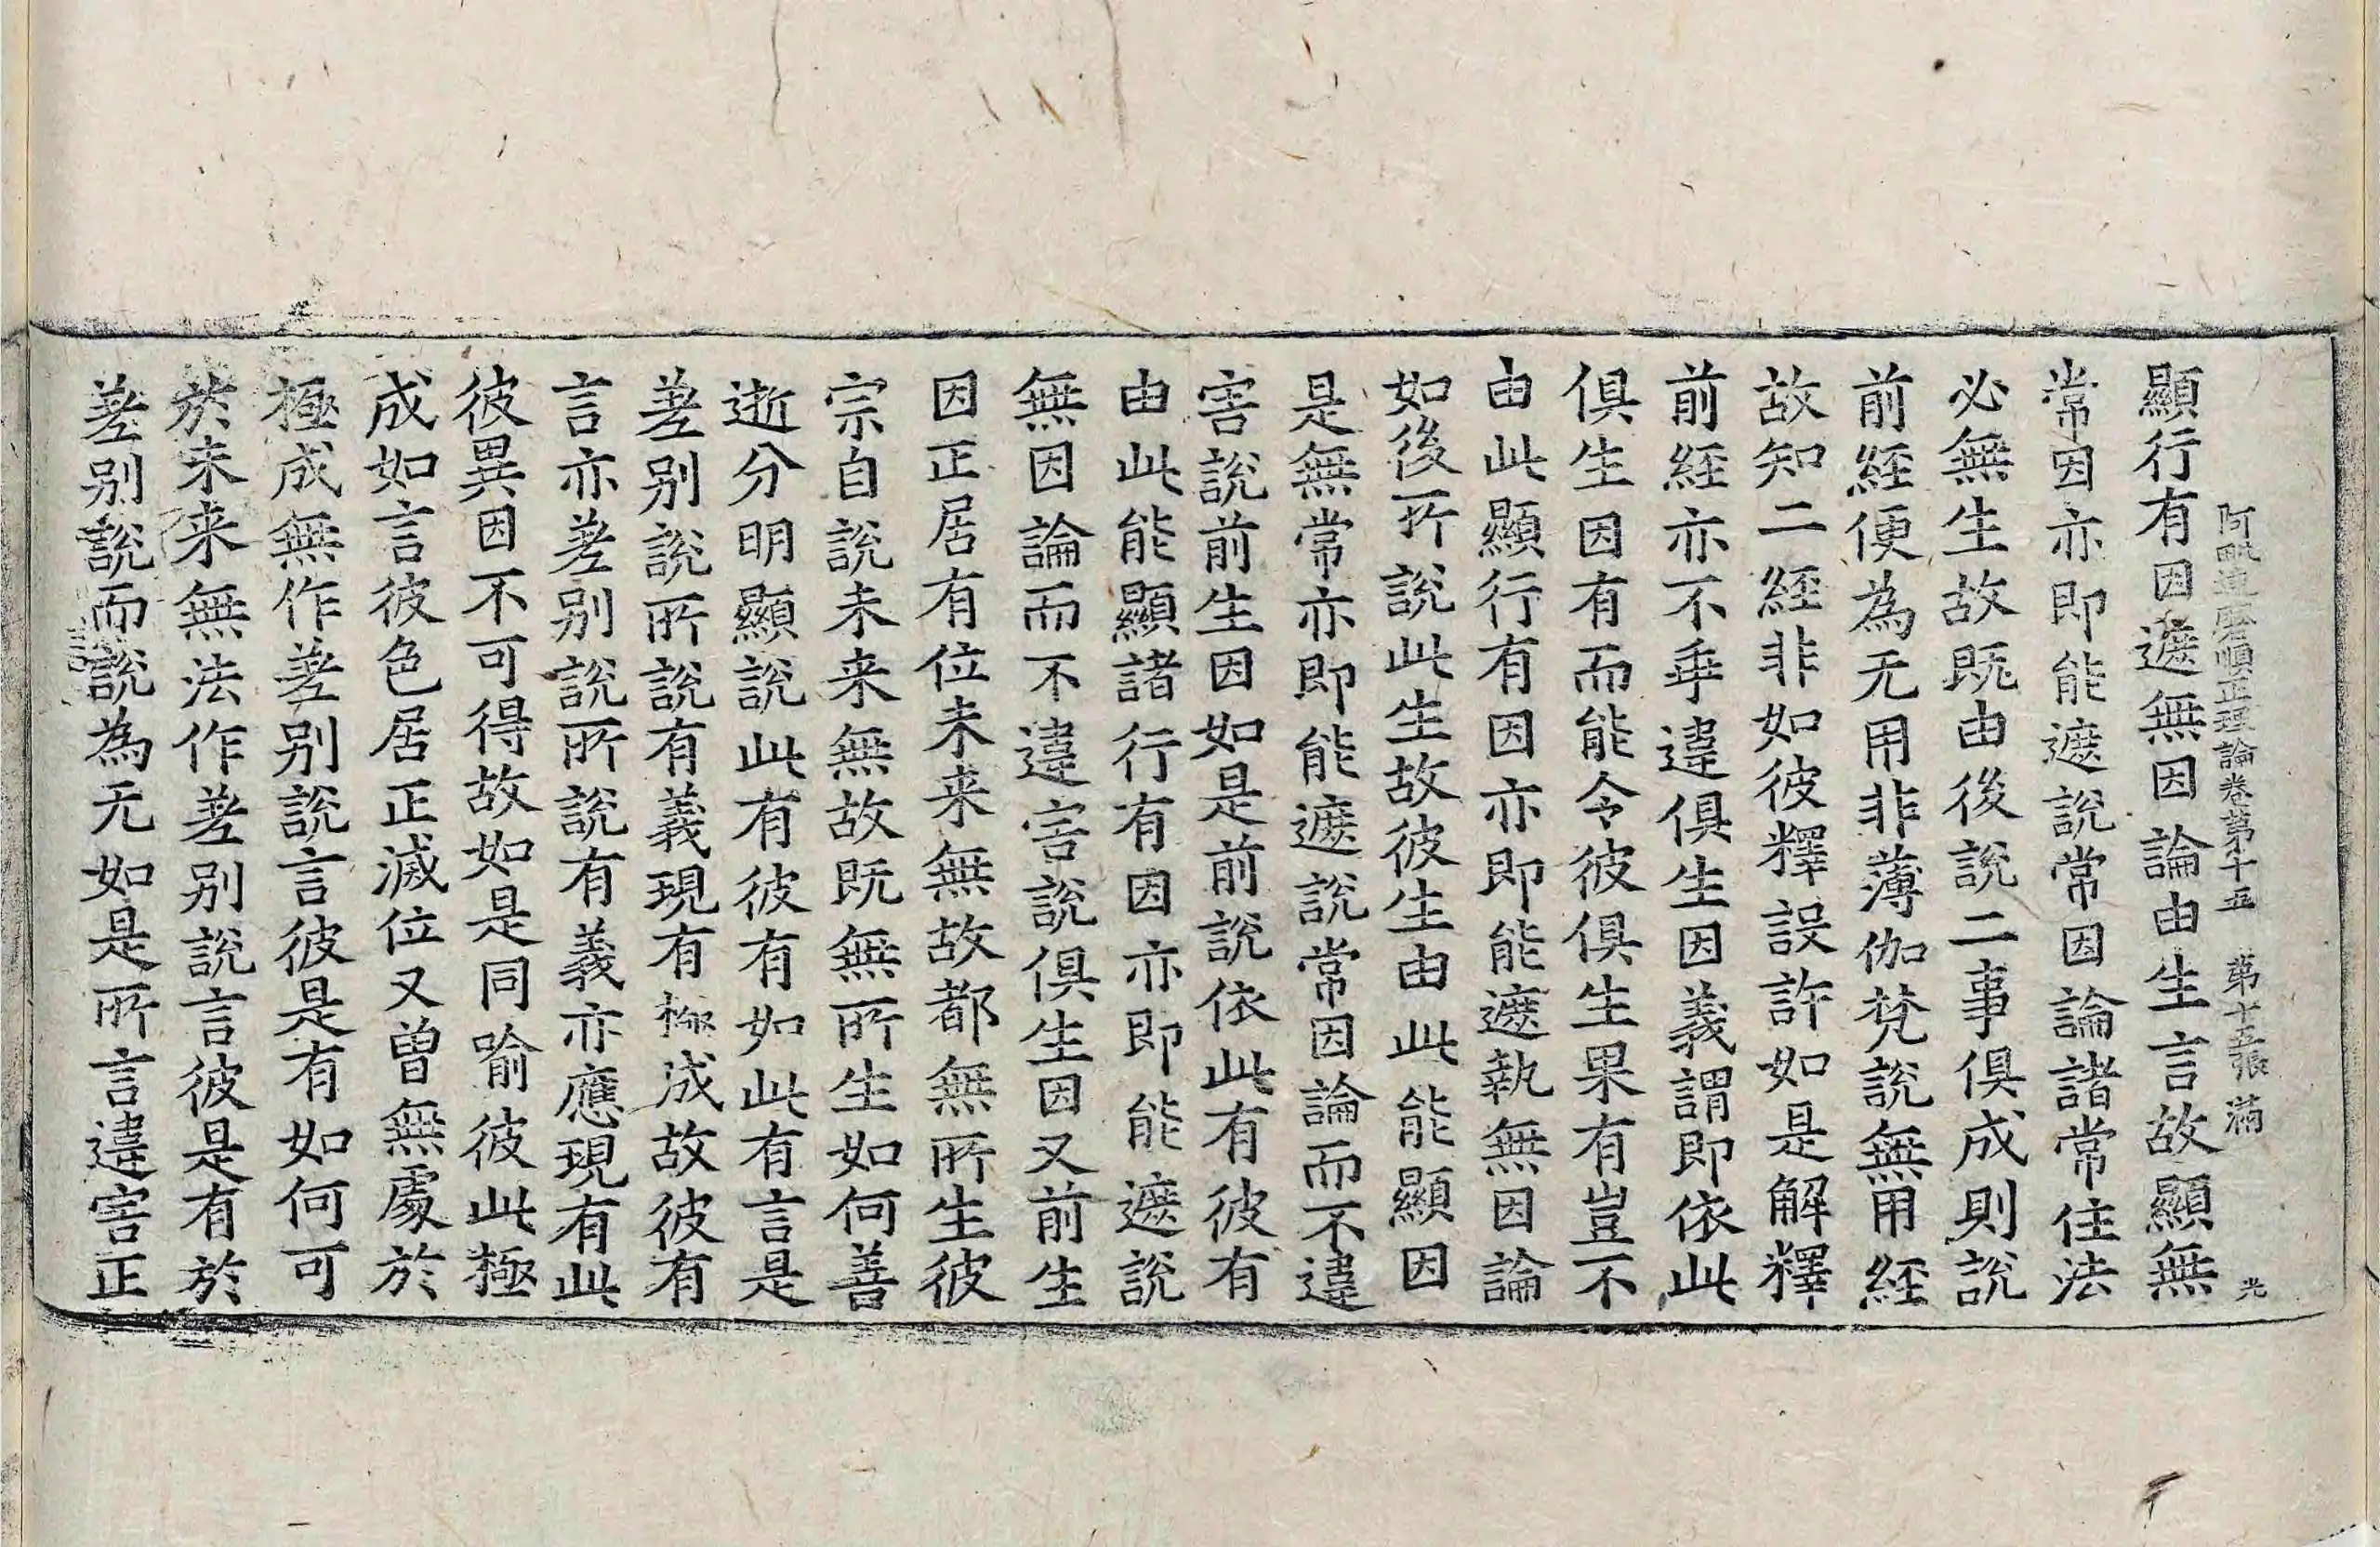 阿毗達磨順正理論卷第十五　第十五張　滿　光
顯行有因遮無因論由生言故顯無
常因亦即能遮說常因論諸常住法
必無生故既由後說二事俱成則說
前経便為无用非薄伽梵說無用経
故知二経非如彼釋設許如是解釋
前経亦不乖違俱生因義謂即依此
俱生因有而能令彼俱生果有豈不
由此顯行有因亦即能遮執無因論
如後所說此生故彼生由此能顯因
是無常亦即能遮說常因論而不違
害說前生因如是前說依此有彼有
由此能顯諸行有因亦即能遮說
無因論而不違害說俱生因又前生
因正居有位未来無故都無所生彼
宗自說未来無故既無所生如何善
逝分明顯說此有彼有如此有言是
差别說所說有義現有極成故彼有
言亦差别說所說有義亦應現有此
彼異因不可得故如是同喻彼此極
成如言彼色居正滅位又曾無處於
極成無作差别說言彼是有如何可
於未来無法作差别說言彼是有於
差别說而說為无如是所言違害正